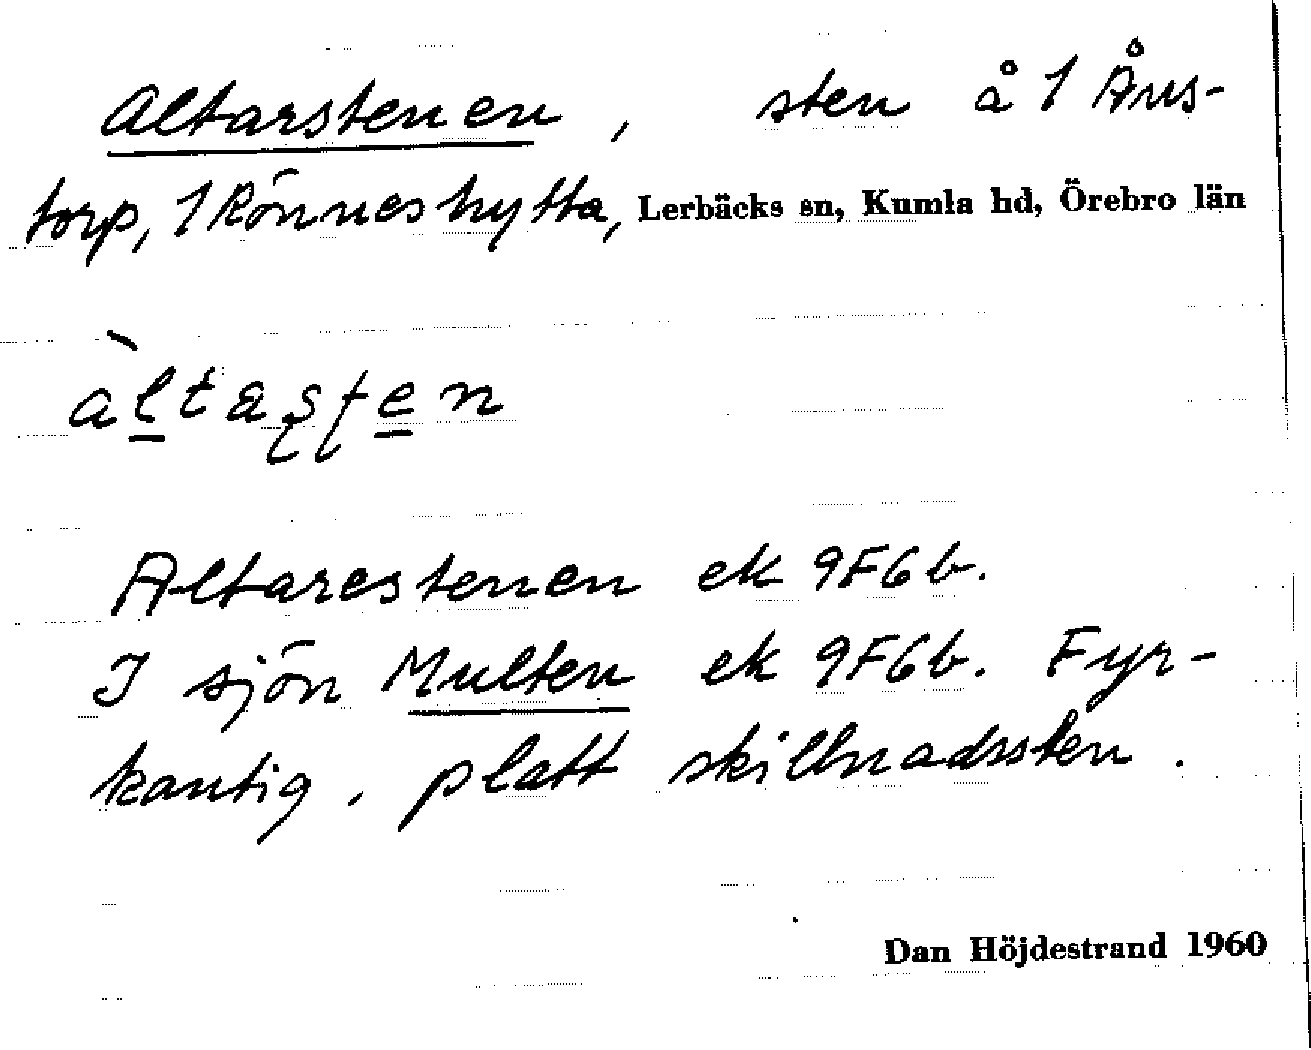 Altarstenen, sten å 1 Åns-
torp, 1 Rönneshytta, Lerbäcks sn, Kumla hd, Örebro län
àltaʂʈen
Altarestenen ek 9F6b.
I sjön Multen ek 9F6b. Fyr-
kantig, platt skillnadssten.
Dan Höjdestrand 1960